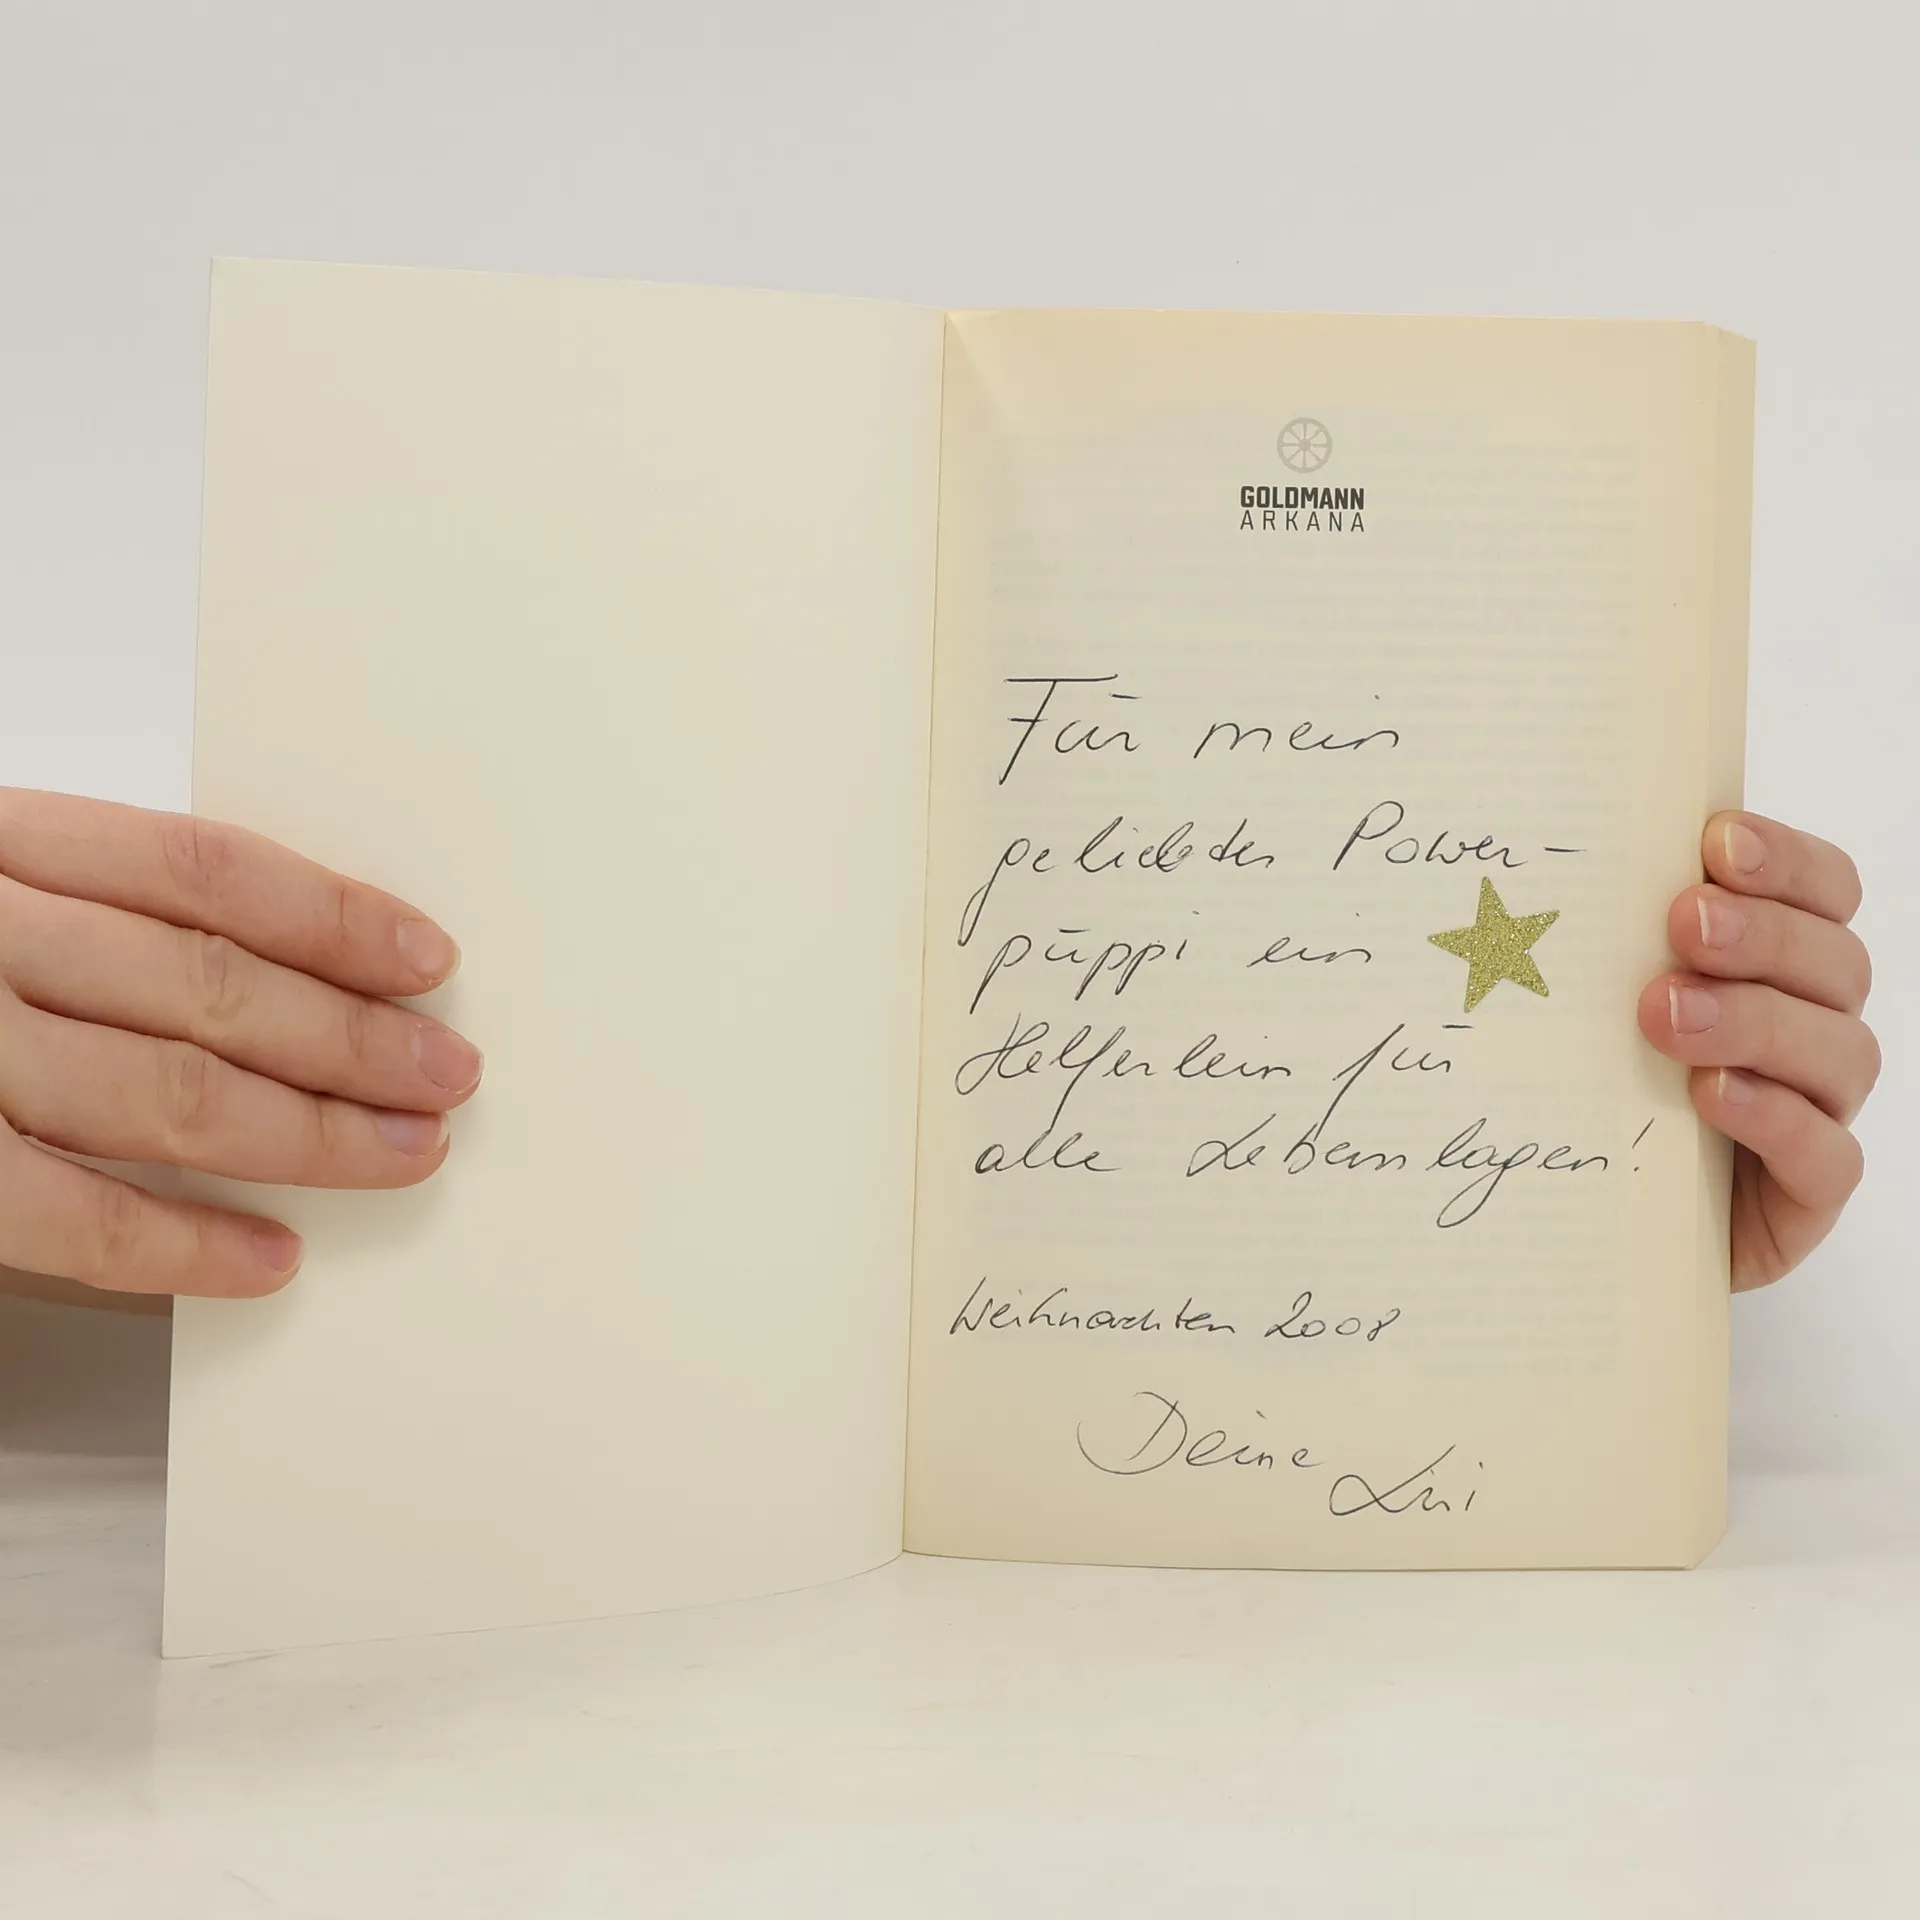 GOLDMANN
ARKANA
Für mein
geliebtes Power-
püppi ein
Helferlein für
alle Lebenslagen!
Weihnachten 2008
Deine Lini